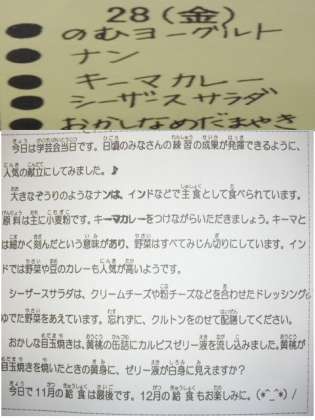 28(金)
のむヨーグルト
ナン
キーマカレー
シーザースサラダ
おかしなめだまやき
今日は学芸会当日です。日頃のみなさんの練習の成果が発揮できるように、
人気の献立にしてみました。♪
大きなぞうりのようなナンは、インドなどで主食として食べられています。
原料は主に小麦粉です。キーマカレーをつけながらいただきましょう。キーマと
は細かく刻んだという意味があり、野菜はすべてみじん切りにしています。イン
ドでは野菜や豆のカレーも人気が高いようです。
シーザースサラダは、クリームチーズや粉チーズなどを合わせたドレッシング
ゆでた野菜をあえています。忘れずに、クルトンをのせて配膳してください。
おかしな目玉焼きは、黄桃の缶詰にカルピスゼリー液を流し込みました。黄桃が
目玉焼きを焼いたときの黄身に、ゼリー液が白身に見えますか?
今日で11月の給食は最後です。12月の給食もお楽しみに。(*^_^*)/